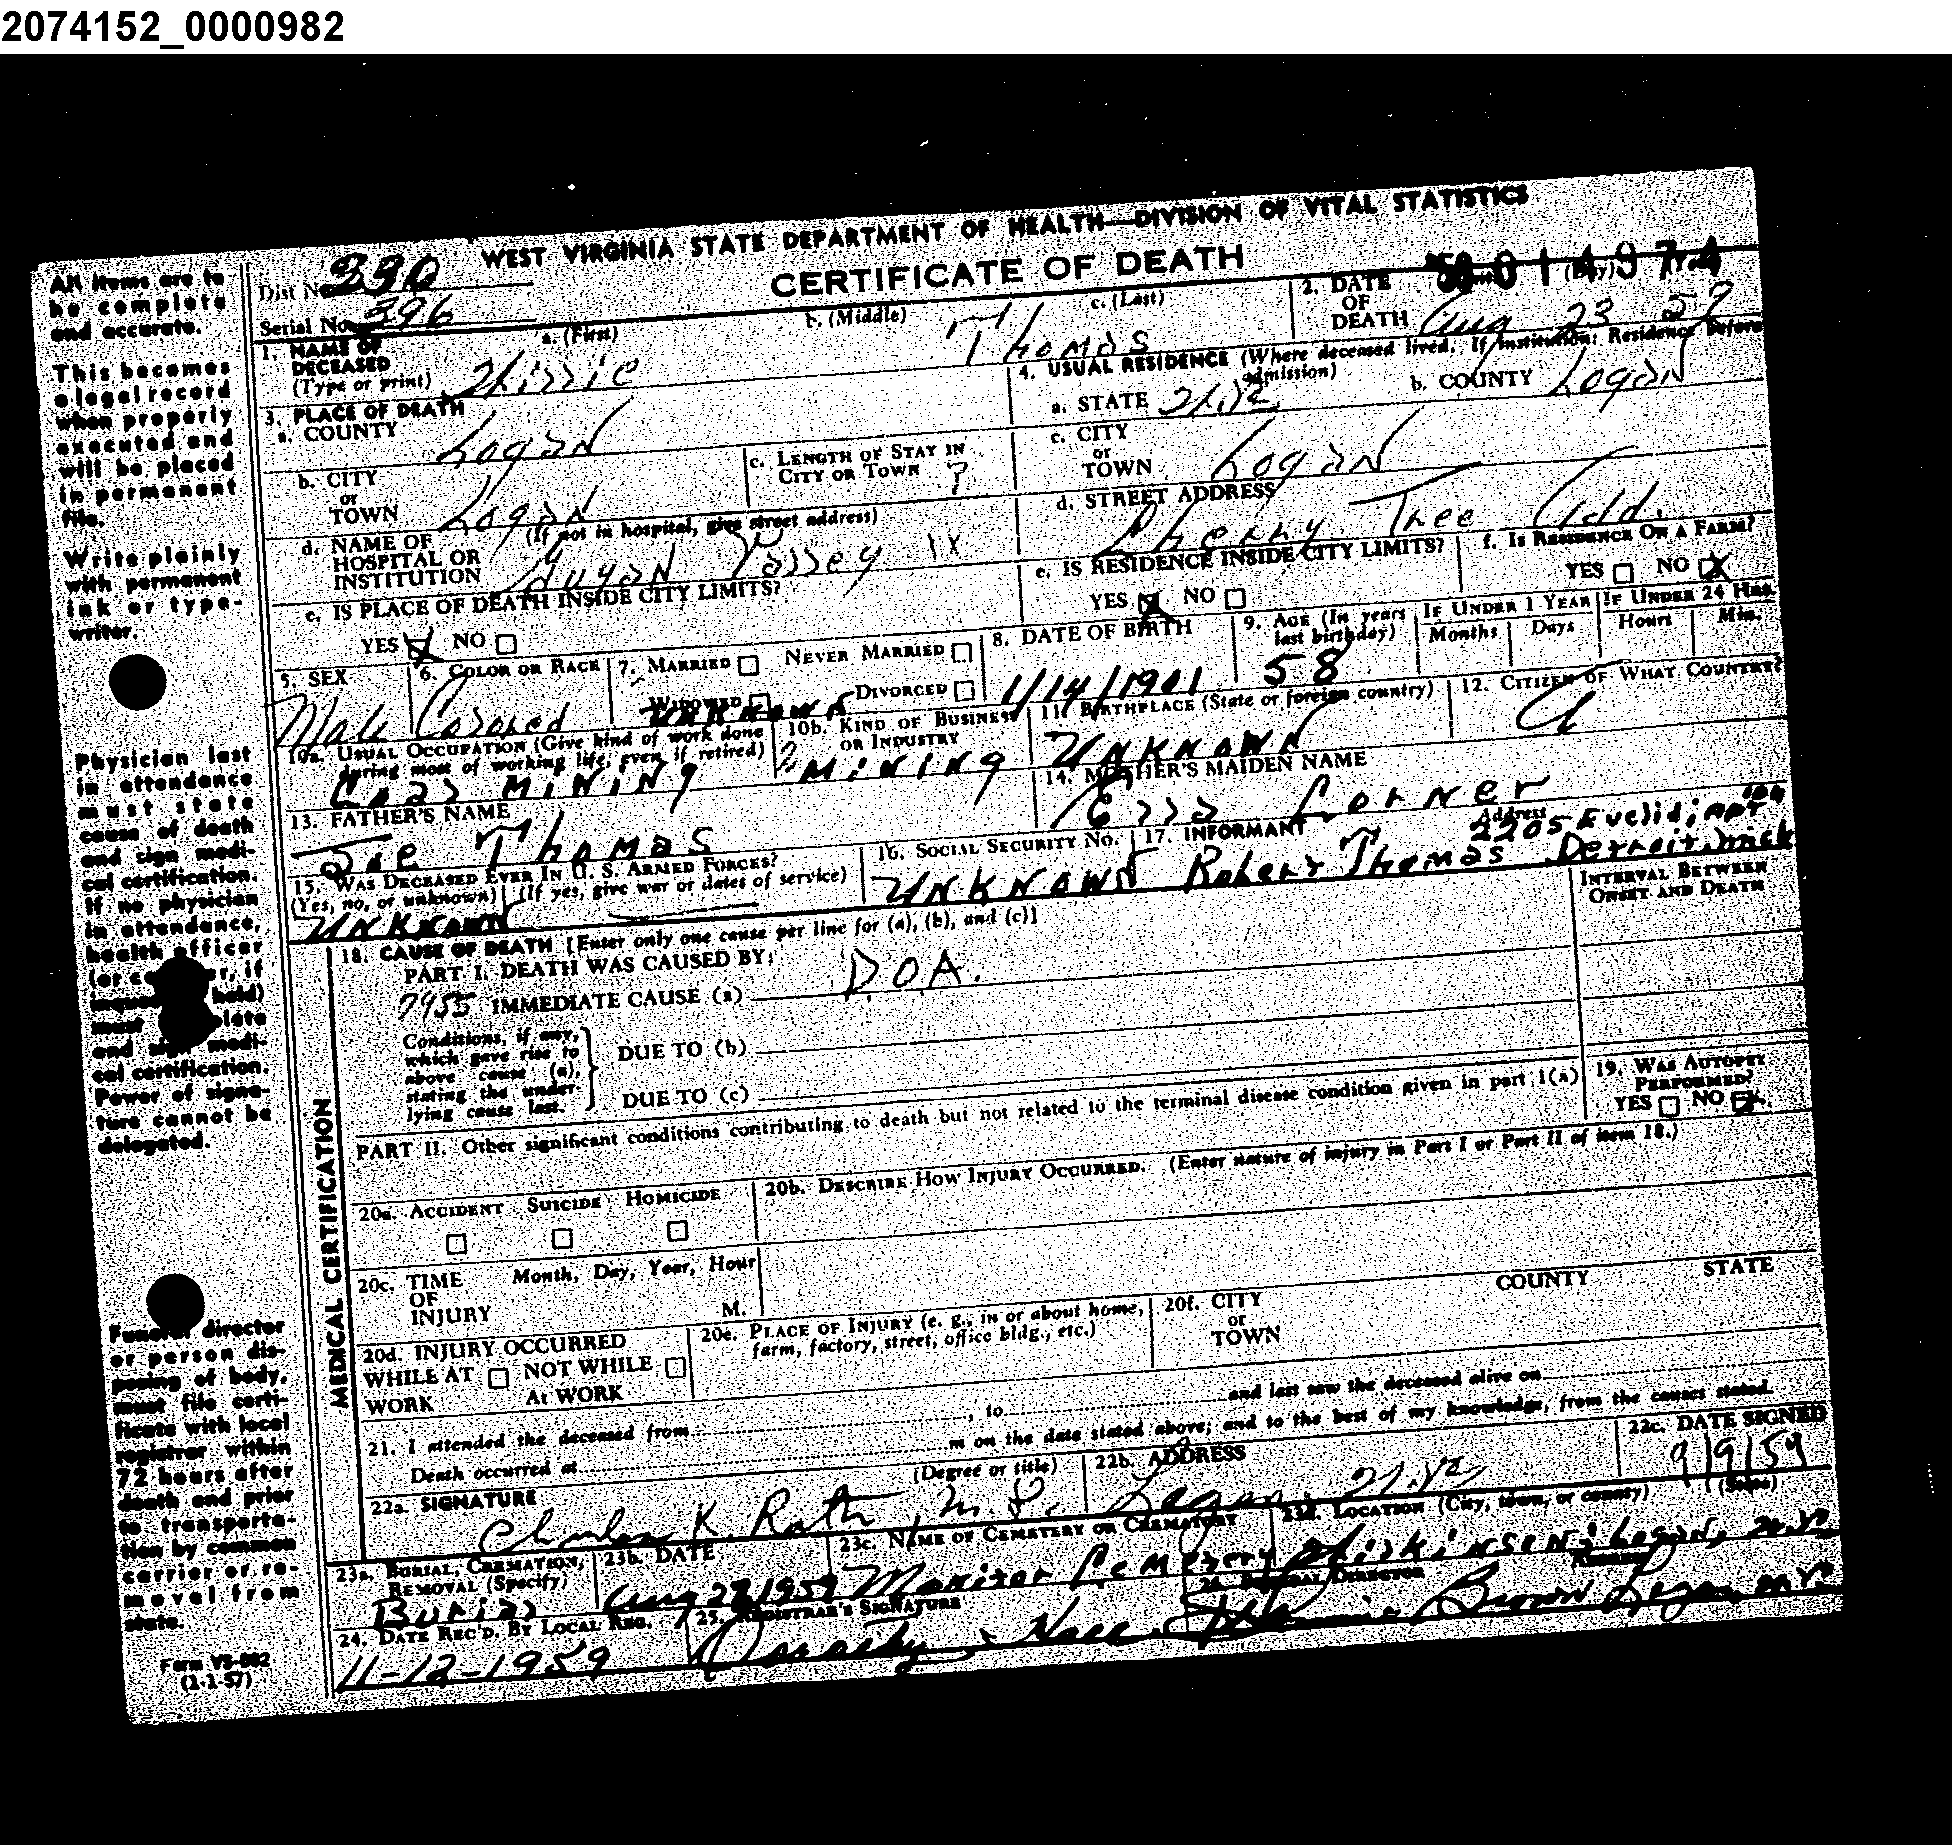 2074152_0000982
WEST VIRGINIA STATE DEPARTMENT OF HEALTH—DIVISION OF VITAL STATISTICS
CERTIFICATE OF DEATH
Dist No. 390
Serial No. 396
1. NAME OF DECEASED (Type or print)
a. (First) Willie
b. (Middle)
c. (Last) Thomas
2. DATE OF DEATH (Day) Aug 23 59
3. PLACE OF DEATH
a. COUNTY Logan
b. CITY or TOWN Logan
c. LENGTH OF STAY IN CITY OR TOWN ?
d. NAME OF HOSPITAL OR INSTITUTION (If not in hospital, give street address) Guyan Valley
e. IS PLACE OF DEATH INSIDE CITY LIMITS?
YES NO
4. USUAL RESIDENCE (Where deceased lived. If institution: Residence before admission)
a. STATE W.Va.
b. COUNTY Logan
c. CITY or TOWN Logan
d. STREET ADDRESS Cherry Tree Add.
e. IS RESIDENCE INSIDE CITY LIMITS?
YES NO
f. IS RESIDENCE ON A FARM?
YES NO
5. SEX Male
6. COLOR OR RACE Colored
7. MARRIED NEVER MARRIED
WIDOWED DIVORCED
UNKNOWN
8. DATE OF BIRTH 1/14/1901
9. AGE (In years last birthday) 58
IF UNDER 1 YEAR Months Days
IF UNDER 24 HRS. Hours Min.
10a. USUAL OCCUPATION (Give kind of work done during most of working life, even if retired) Coal Mining
10b. KIND OF BUSINESS OR INDUSTRY Mining
11. BIRTHPLACE (State or foreign country) UNKNOWN
12. CITIZEN OF WHAT COUNTRY?
13. FATHER'S NAME Joe Thomas
14. MOTHER'S MAIDEN NAME Ella Corner
15. WAS DECEASED EVER IN U. S. ARMED FORCES?
(Yes, no, or unknown) (If yes, give war or dates of service)
UNKNOWN
16. SOCIAL SECURITY NO. UNKNOWN
17. INFORMANT Robert Thomas
Address 2205 Euclid, Apt Detroit, Mich
INTERVAL BETWEEN ONSET AND DEATH
18. CAUSE OF DEATH [Enter only one cause per line for (a), (b), and (c)]
PART I. DEATH WAS CAUSED BY:
7955 IMMEDIATE CAUSE (a) D.O.A.
Conditions, if any, which gave rise to above cause (a), stating the underlying cause last.
DUE TO (b)
DUE TO (c)
PART II. Other significant conditions contributing to death but not related to the terminal disease condition given in part I(a)
19. WAS AUTOPSY PERFORMED?
YES NO
20a. ACCIDENT SUICIDE HOMICIDE
20b. DESCRIBE HOW INJURY OCCURRED. (Enter nature of injury in Part I or Part II of item 18.)
20c. TIME OF INJURY Month, Day, Year, Hour M.
20d. INJURY OCCURRED
WHILE AT WORK NOT WHILE AT WORK
20e. PLACE OF INJURY (e. g., in or about home, farm, factory, street, office bldg., etc.)
20f. CITY or TOWN COUNTY STATE
21. I attended the deceased from , to and last saw the deceased alive on
Death occurred at m on the date stated above; and to the best of my knowledge, from the causes stated.
22a. SIGNATURE (Degree or title) Charles K. Roth, M.D.
22b. ADDRESS Logan, W.Va
22c. DATE SIGNED 9/9/59
23a. BURIAL, CREMATION, REMOVAL (Specify) Burial
23b. DATE Aug 1959
23c. NAME OF CEMETERY OR CREMATORY Monitor Cemetery
23d. LOCATION (City, town, or county) (State) Wilkinson, Logan, W.Va
24. DATE REC'D. BY LOCAL REG. 11-12-1959
25. REGISTRAR'S SIGNATURE
FUNERAL DIRECTOR Address
Brown Logan W.Va
MEDICAL CERTIFICATION
All items are to be complete and accurate.
This becomes a legal record when properly executed and will be placed in permanent file.
Write plainly with permanent ink or typewriter.
Physician last in attendance must state cause of death and sign medical certification. If no physician in attendance, health officer (or if held) must and sign medical certification. Power of signature cannot be delegated.
Funeral director or person disposing of body, must file certificate with local registrar within 72 hours after death and prior to transportation by common carrier or removal from state.
Form VS-002
(1-1-57)